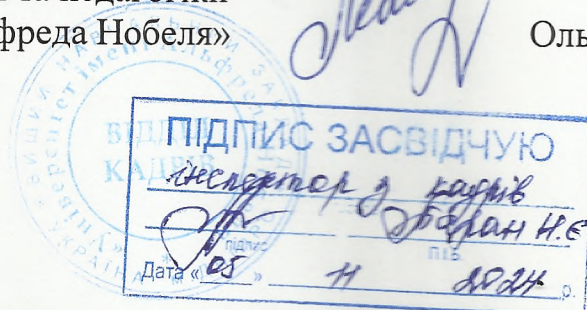 та педагогіки
фреда Нобеля» Оль
ВІДДІЛ
КАДРІВ
ПІДПИС ЗАСВІДЧУЮ
інспектор з кадрів
Баран Н.Є
підпис П.І.Б.
Дата «05» 11 2024 р.